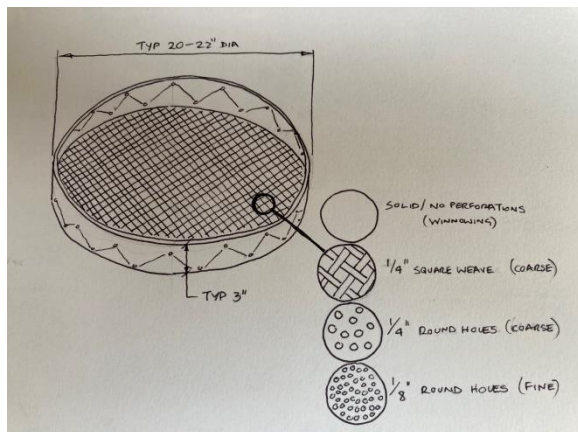 TYP 20-22" DIA
SOLID/NO PERFORATIONS
(WINNOWING)
1/4" SQUARE WEAVE (COARSE)
TYP 3"
1/4" ROUND HOLES (COARSE)
1/8" ROUND HOLES (FINE)